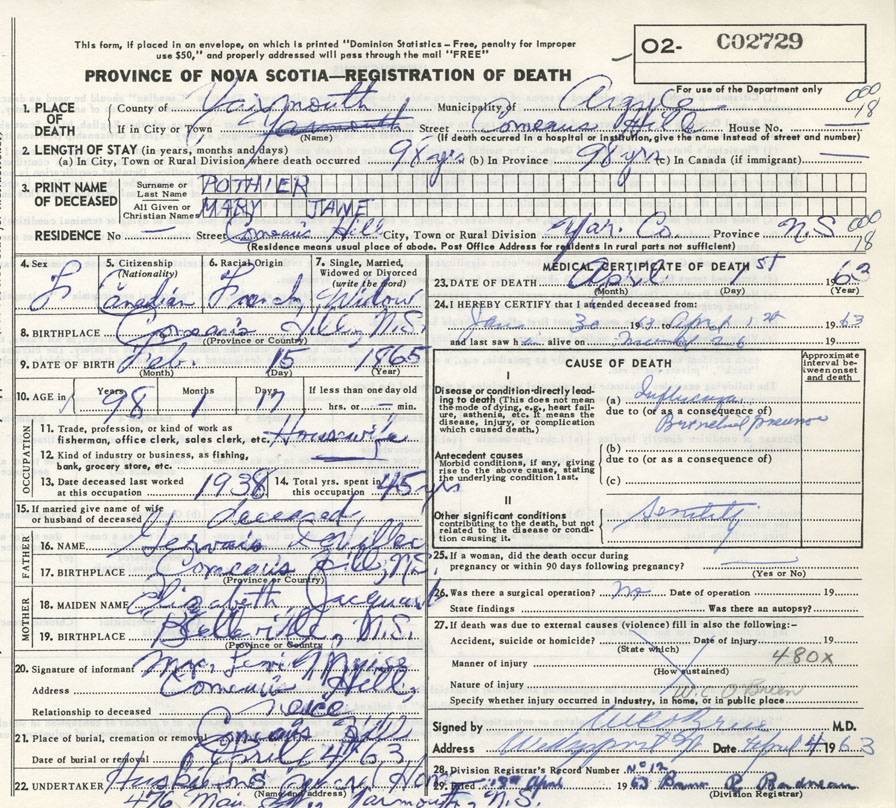 This form, if placed in an envelope, on which is printed "Dominion Statistics - Free, penalty for improper
use $50," and properly addressed will pass through the mail "FREE"
O2- C02729
PROVINCE OF NOVA SCOTIA—REGISTRATION OF DEATH
For use of the Department only
1. PLACE OF DEATH County of Yarmouth Municipality of Argyle 000
If in City or Town Yarmouth Street Comeaus Hill House No. — 18
(Name) (If death occurred in hospital or institution, give the name instead of street and number)
2. LENGTH OF STAY (in years, months and days)
(a) In City, Town or Rural Division where death occurred 98 yrs (b) In Province 98 yrs. (c) In Canada (if immigrant) —
3. PRINT NAME OF DECEASED Surname or Last Name POTHIER
All Given or Christian Names MARY JANE
RESIDENCE No — Street Comeaus Hill City, Town or Rural Division Yar. Co. Province N.S 000 18
(Residence means usual place of abode. Post Office Address for residents in rural parts not sufficient)
4. Sex F
5. Citizenship (Nationality) Canadian
6. Racial Origin French
7. Single, Married, Widowed or Divorced (write the word) Widow
8. BIRTHPLACE Comeaus Hill, N.S.
(Province or Country)
9. DATE OF BIRTH Feb. 15 1865
(Month) (Day) (Year)
10. AGE in Years 98 Months 1 Days 17 If less than one day old
hrs. or — min.
OCCUPATION
11. Trade, profession or kind of work as
fisherman, office clerk, sales clerk, etc. Housewife
12. Kind of industry or business, as fishing,
bank, grocery store, etc. —
13. Date deceased last worked
at this occupation 1938
14. Total yrs. spent in
this occupation 45 yrs
15. If married give name of wife
or husband of deceased deceased
FATHER
16. NAME Gervais
17. BIRTHPLACE Comeaus Hill, N.S.
(Province or Country)
MOTHER
18. MAIDEN NAME Elizabeth Jacquard
19. BIRTHPLACE Belleville, N.S.
(Province or Country)
20. Signature of informant Mrs.
Address Comeaus Hill
Relationship to deceased niece
21. Place of burial, cremation or removal Comeaus Hill
Date of burial or removal April 4/63
22. UNDERTAKER Huskilson's Funeral Home
(Name and address)
476 Main Yarmouth, N.S.
MEDICAL CERTIFICATE OF DEATH
23. DATE OF DEATH April 1 st 1963
(Month) (Day) (Year)
24. I HEREBY CERTIFY that I attended deceased from:
Jan 30 1963 to April 1 st 1963
and last saw h alive on 19
CAUSE OF DEATH
Approximate interval between onset and death
I
Disease or condition directly leading to death (This does not mean
the mode of dying, e.g., heart failure, asthenia, etc. It means the
disease, injury, or complication
which caused death.)
(a) Influenza
due to (or as a consequence of)
Bronchial pneumonia
Antecedent causes
Morbid conditions, if any, giving
rise to the above cause, stating
the underlying condition last.
(b)
due to (or as a consequence of)
(c)
II
Other significant conditions
contributing to the death, but not
related to the disease or condition causing it.
Senility
25. If a woman, did the death occur during
pregnancy or within 90 days following pregnancy? —
(Yes or No)
26. Was there a surgical operation? no Date of operation 19
State findings Was there an autopsy?
27. If death was due to external causes (violence) fill in also the following:-
Accident, suicide or homicide? Date of injury 19
(State which)
Manner of injury 480X
(How sustained)
Nature of injury
W.C. O'Brien
Specify whether injury occurred in industry, in home, or in public place
Signed by M.D.
Address Wedgeport N Date April 4 1963
28. Division Registrar's Record Number No 12
29. Filed April 1963
(Division Registrar)